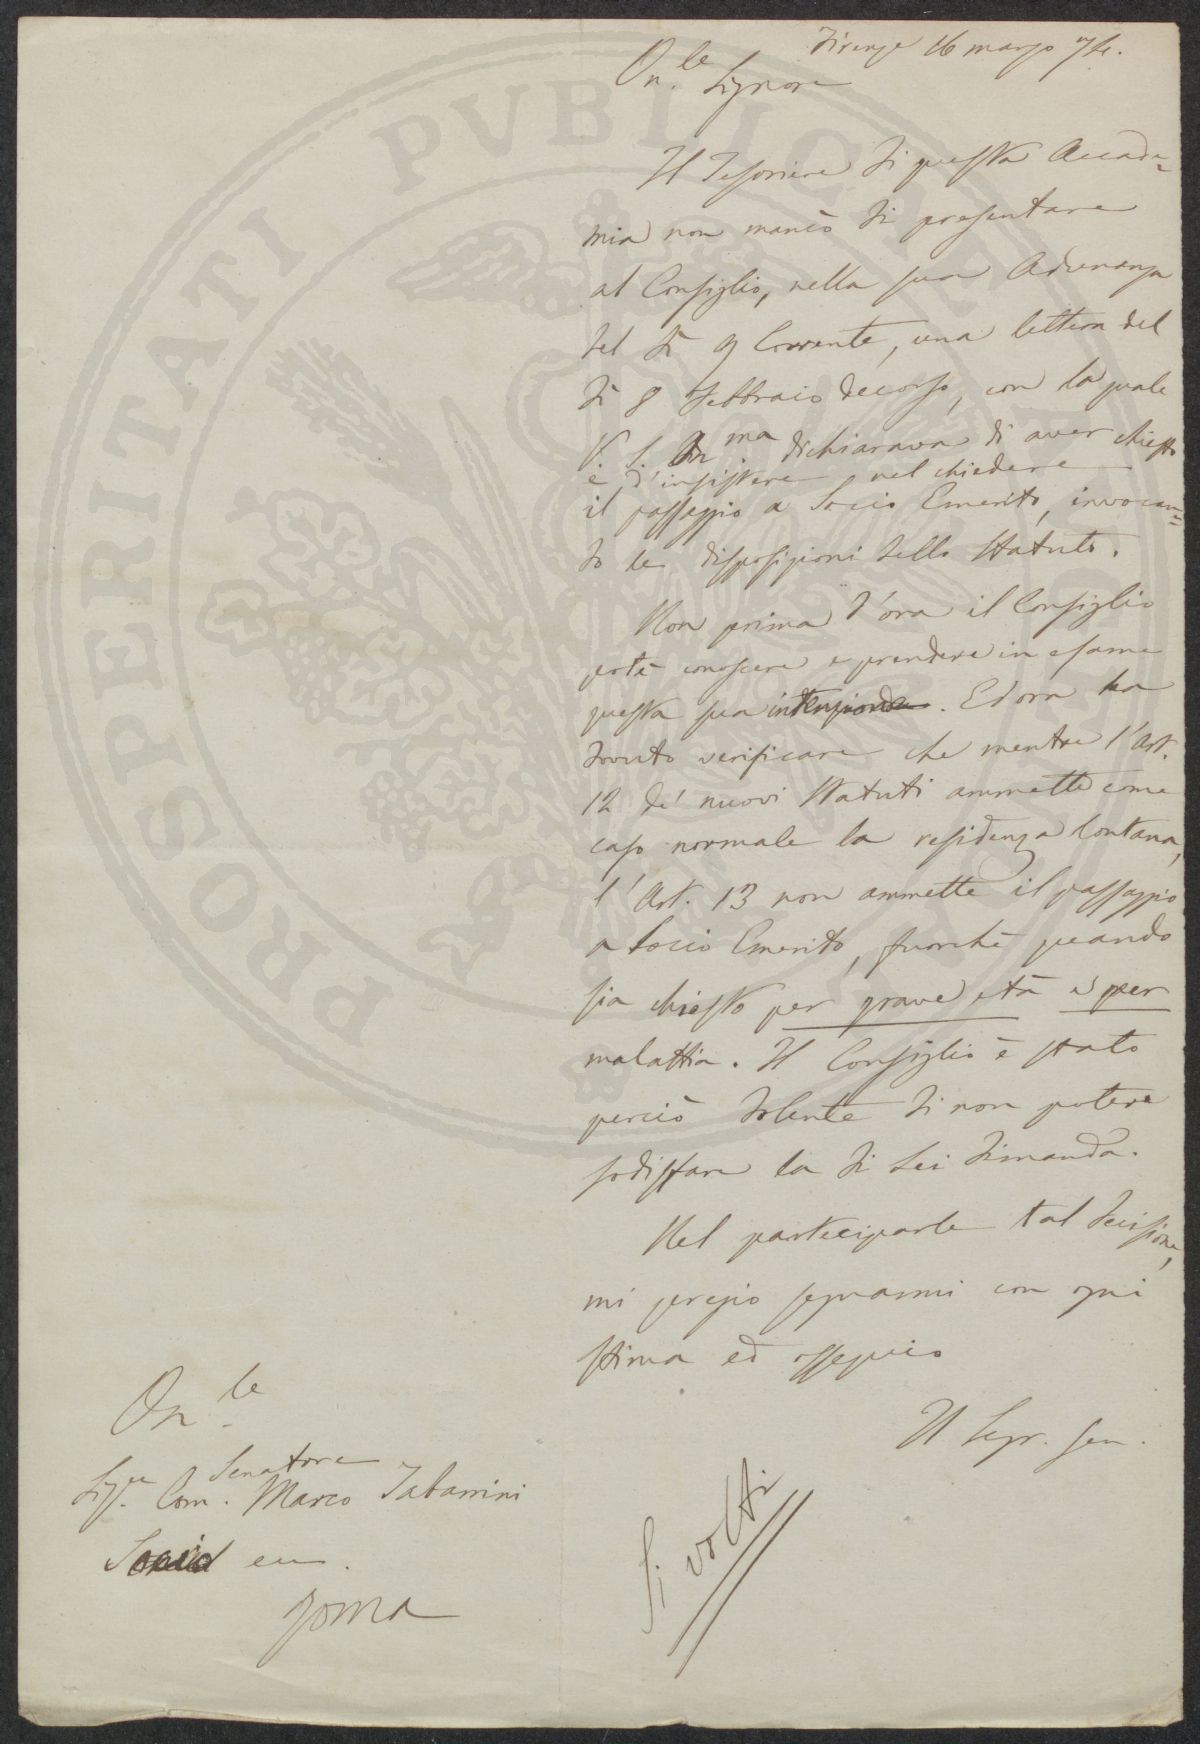 Firenze 16 marzo 74.
On.le Signore
Il Tesoriere di questa Accade-
mia non mancò di presentare
al Consiglio, nella sua Adunanza
del dì 9 Corrente, una lettera del
dì 8 Febbraio decorso, con la quale
V. S. On.ma dichiarava di aver chiesto
e d'insistere nel chiedere
il passaggio a Socio Emerito, invocan-
do le disposizioni dello Statuto.
Non prima d'ora il Consiglio
potè conoscere e prendere in esame
questa sua intenzione. Ed ora ha
dovuto verificare che mentre l'Art.
12 de' nuovi Statuti ammette come
caso normale la residenza lontana,
l'Art. 13 non ammette il passaggio
a Socio Emerito, fuorchè quando
sia chiesto per grave età e per
malattia. Il Consiglio è stato
perciò dolente di non potere
sodisfare la di Lei dimanda.
Nel parteciparle tal decisione,
mi pregio segnarmi con ogni
stima ed ossequio
Il Segr. gen.
Si volti
On.le
Senatore
Sig.re Com. Marco Tabarrini
Socio em.
Roma
PROSPERITATI PVBLICAE